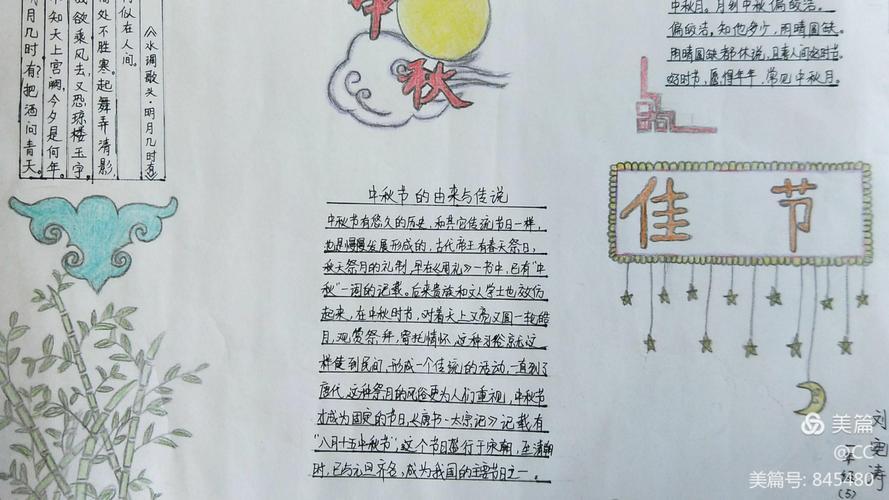 《水调歌头·明月几时有》
似在人间。
处不胜寒。起舞弄清影
欲乘风去,又恐琼楼玉宇
知天上宫阙,今夕是何年。
月几时有?把酒问青天。
中
秋
中秋月。月到中秋偏皎洁。
偏皎洁。知他多少,阴晴圆缺。
阴晴圆缺都休说,且喜人间好时节。
好时节,愿得年年,常见中秋月。
佳 节
中秋节的由来与传说
中秋节有悠久的历史,和其它传统节日一样,
也是慢慢发展形成的,古代帝王有春天祭日,
秋天祭月的礼制,早在《周礼》一书中,已有“中
秋”一词的记载。后来贵族和文人学士也效仿
起来,在中秋时节,对着天上又亮又圆一轮皓
月,观赏祭拜,寄托情怀,这种习俗就这
样传到民间,形成一个传统的活动,一直到了
唐代,这种祭月的风俗更为人们重视,中秋节
才成为固定的节日,《唐书·太宗记》记载有
“八月十五中秋节”,这个节日盛行于宋朝,至清朝
时,已与元旦齐名,成为我国的主要节日之一。
美篇
@CC
美篇号: 845480